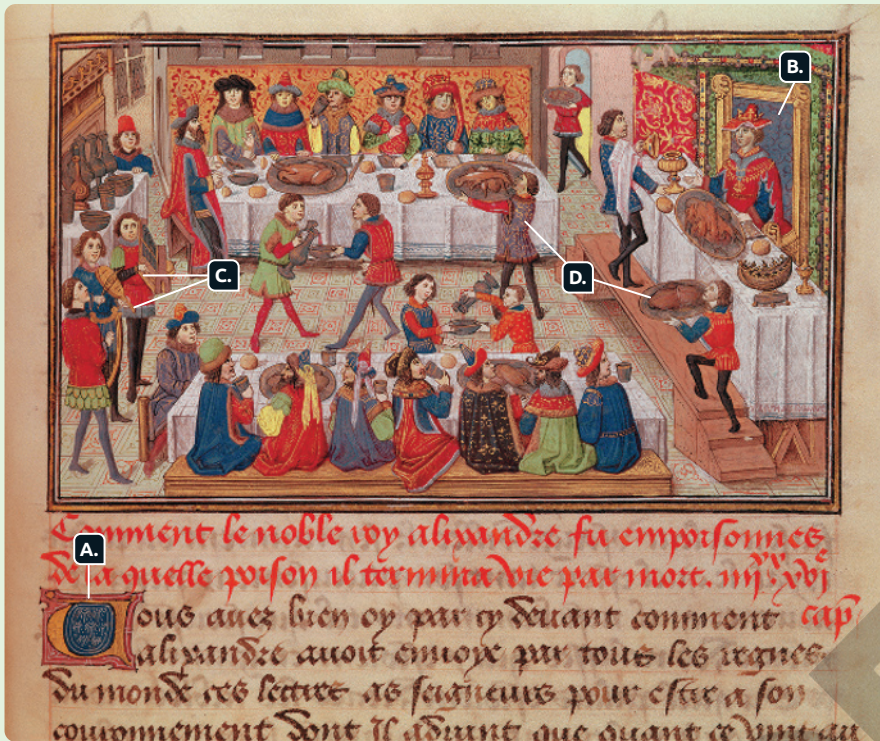 B.
C.
D.
Comment le noble roy alixandre fu empoisonnes
A.
de la quelle poison il termina vie par mort. iiijxx xvje
Vous auez bien oy par cy deuant comment cap
alixandre auoit enuoye par tous les regnes
du monde ces lettres as seigneurs pour estre a son
couronnement dont il aduint que quant ce vint au